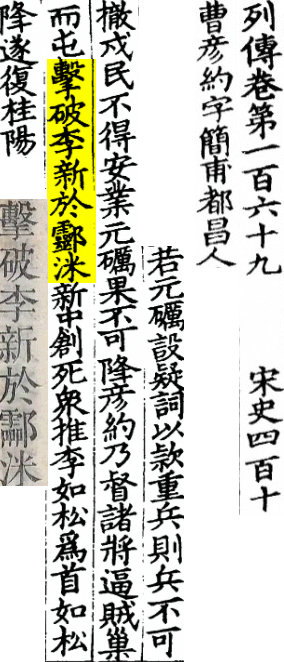 列傳卷第一百六十九 宋史四百十
曹彦約字簡甫都昌人
若元礪設疑詞以款重兵則兵不可
撤戍民不得安業元礪果不可降彦約乃督諸將逼賊巢
而屯擊破李新於酃洣新中創死衆推李如松爲首如松
降遂復桂陽
擊破李新於酃洣